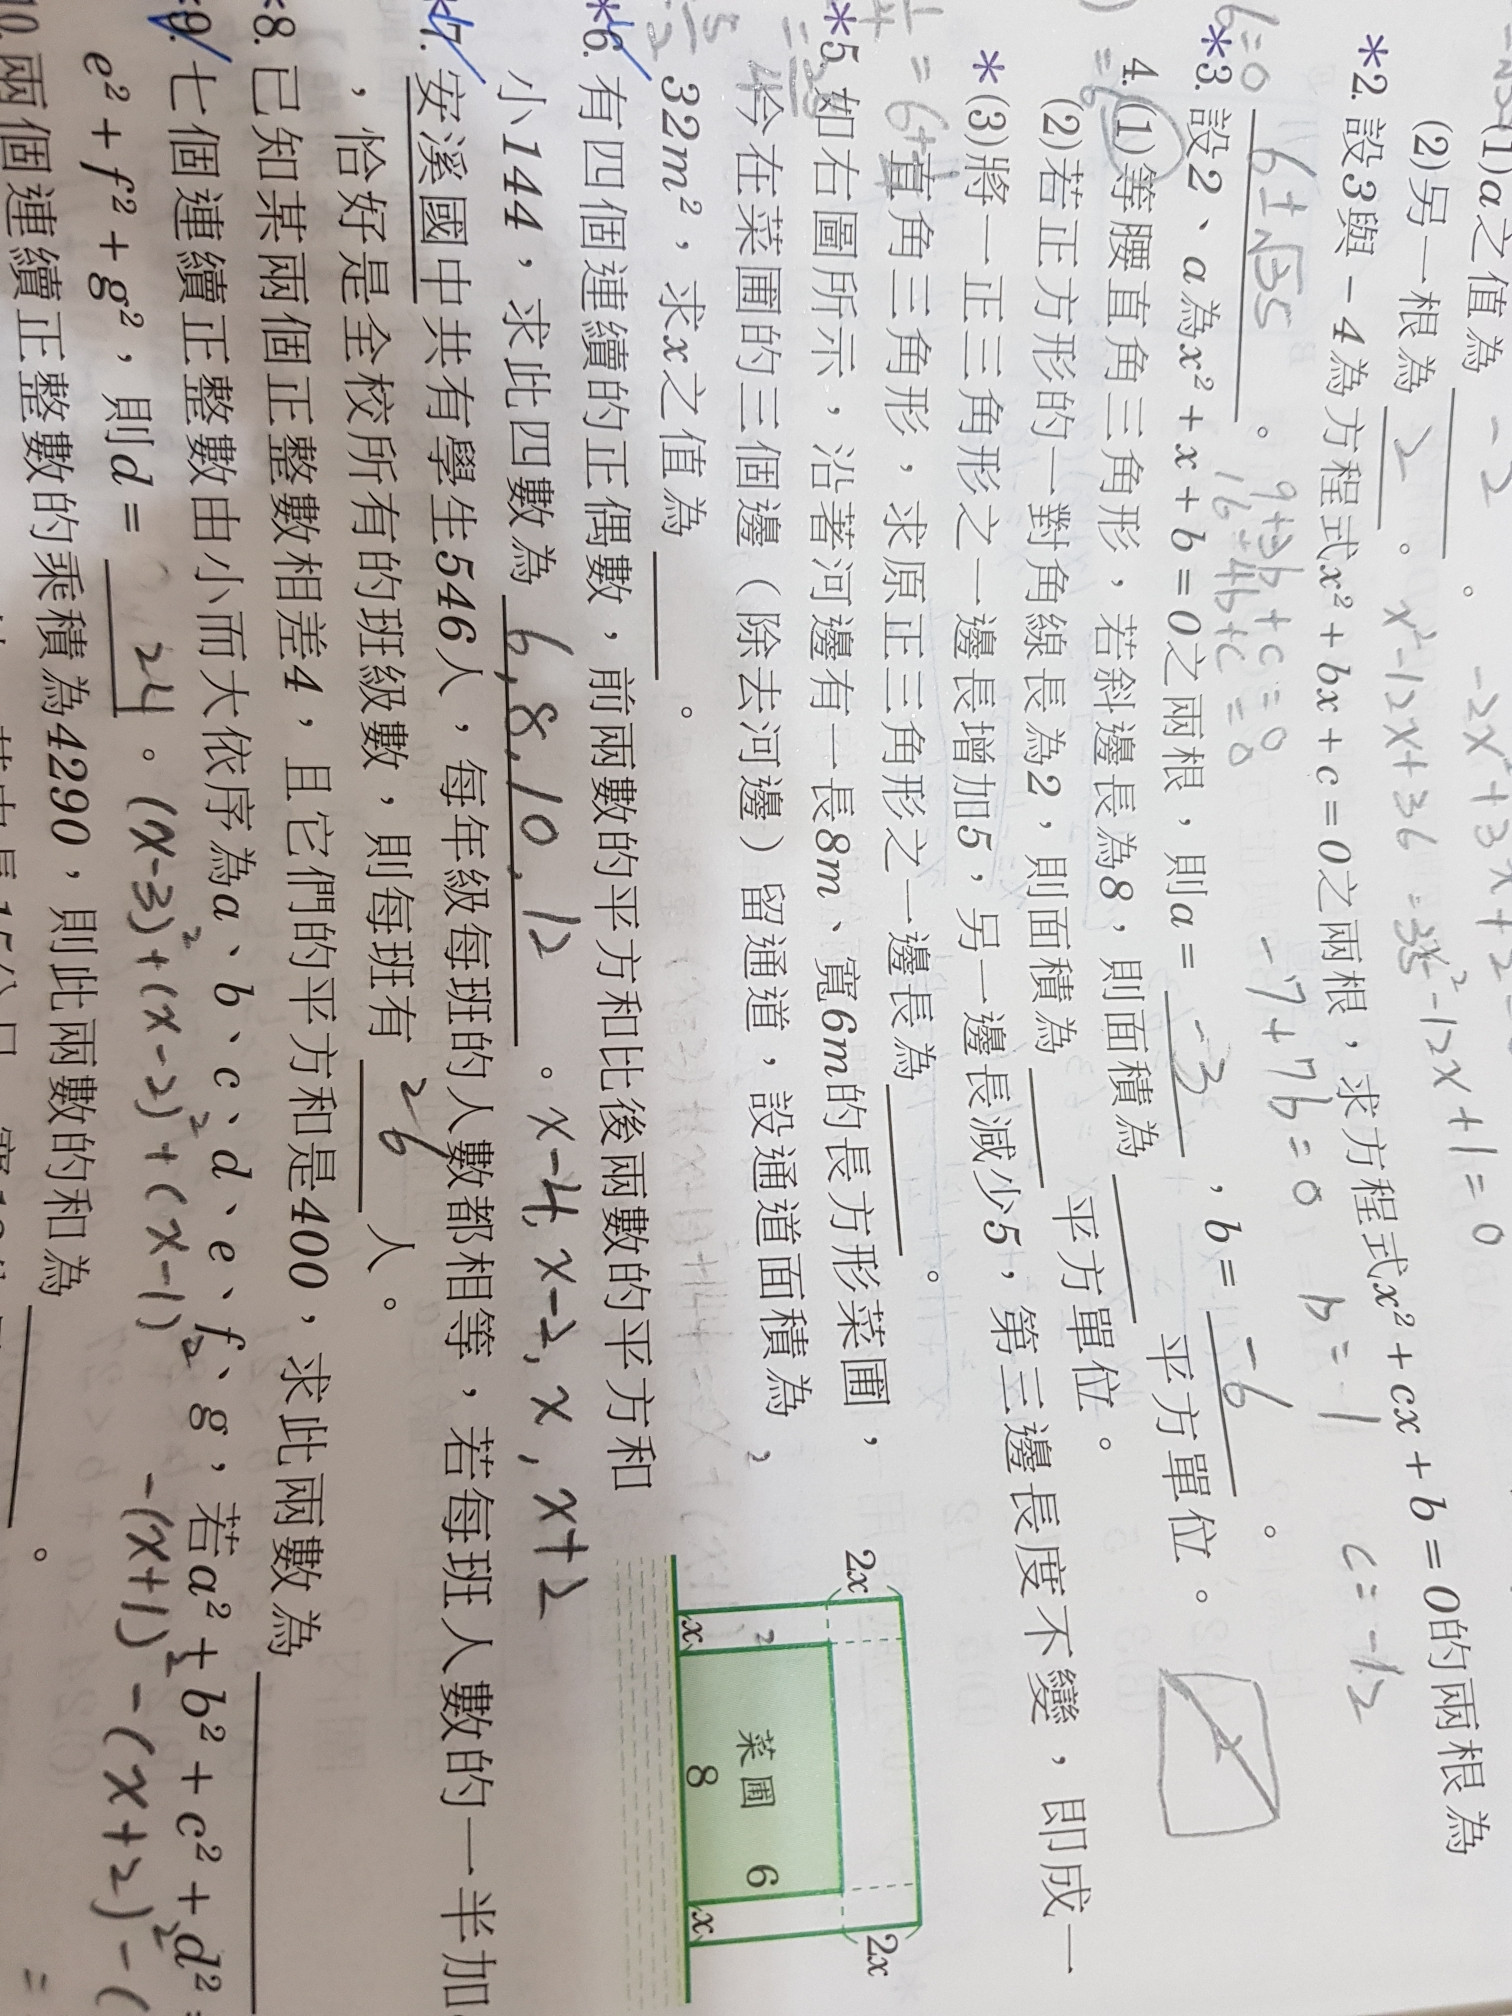 (1)a之值為 -2 。 -2x²+3x+2
(2)另一根為 2 。 x²-12x+36 = 35 x²-12x+1=0
*2.設3與-4為方程式x²+bx+c=0之兩根，求方程式x²+cx+b=0的兩根為
6±√35 。 9+3b+c=0 -7+7b=0 b=1 c=-12
16-4b+c=0
b=0
*3.設2、a為x²+x+b=0之兩根，則a= -3 ，b= -6 。
4.(1)等腰直角三角形，若斜邊長為8，則面積為 平方單位。
(2)若正方形的一對角線長為2，則面積為 平方單位。
*(3)將一正三角形之一邊長增加5，另一邊長減少5，第三邊長度不變，即成一
直角三角形，求原正三角形之一邊長為 。
*5.如右圖所示，沿著河邊有一長8m、寬6m的長方形菜圃，
今在菜圃的三個邊（除去河邊）留通道，設通道面積為
32m²，求x之值為 。
2x
2x
菜圃
6
8
x
x
*6.有四個連續的正偶數，前兩數的平方和比後兩數的平方和
小144，求此四數為 6,8,10,12 。 x-4, x-2, x, x+2
*7.安溪國中共有學生546人，每年級每班的人數都相等，若每班人數的一半加
，恰好是全校所有的班級數，則每班有 26 人。
*8.已知某兩個正整數相差4，且它們的平方和是400，求此兩數為
*9.七個連續正整數由小而大依序為a、b、c、d、e、f、g，若a²+b²+c²+d²=
e²+f²+g²，則d= 24 。 (x-3)²+(x-2)²+(x-1)² -(x+1)²-(x+2)²-(
10.兩個連續正整數的乘積為4290，則此兩數的和為 。